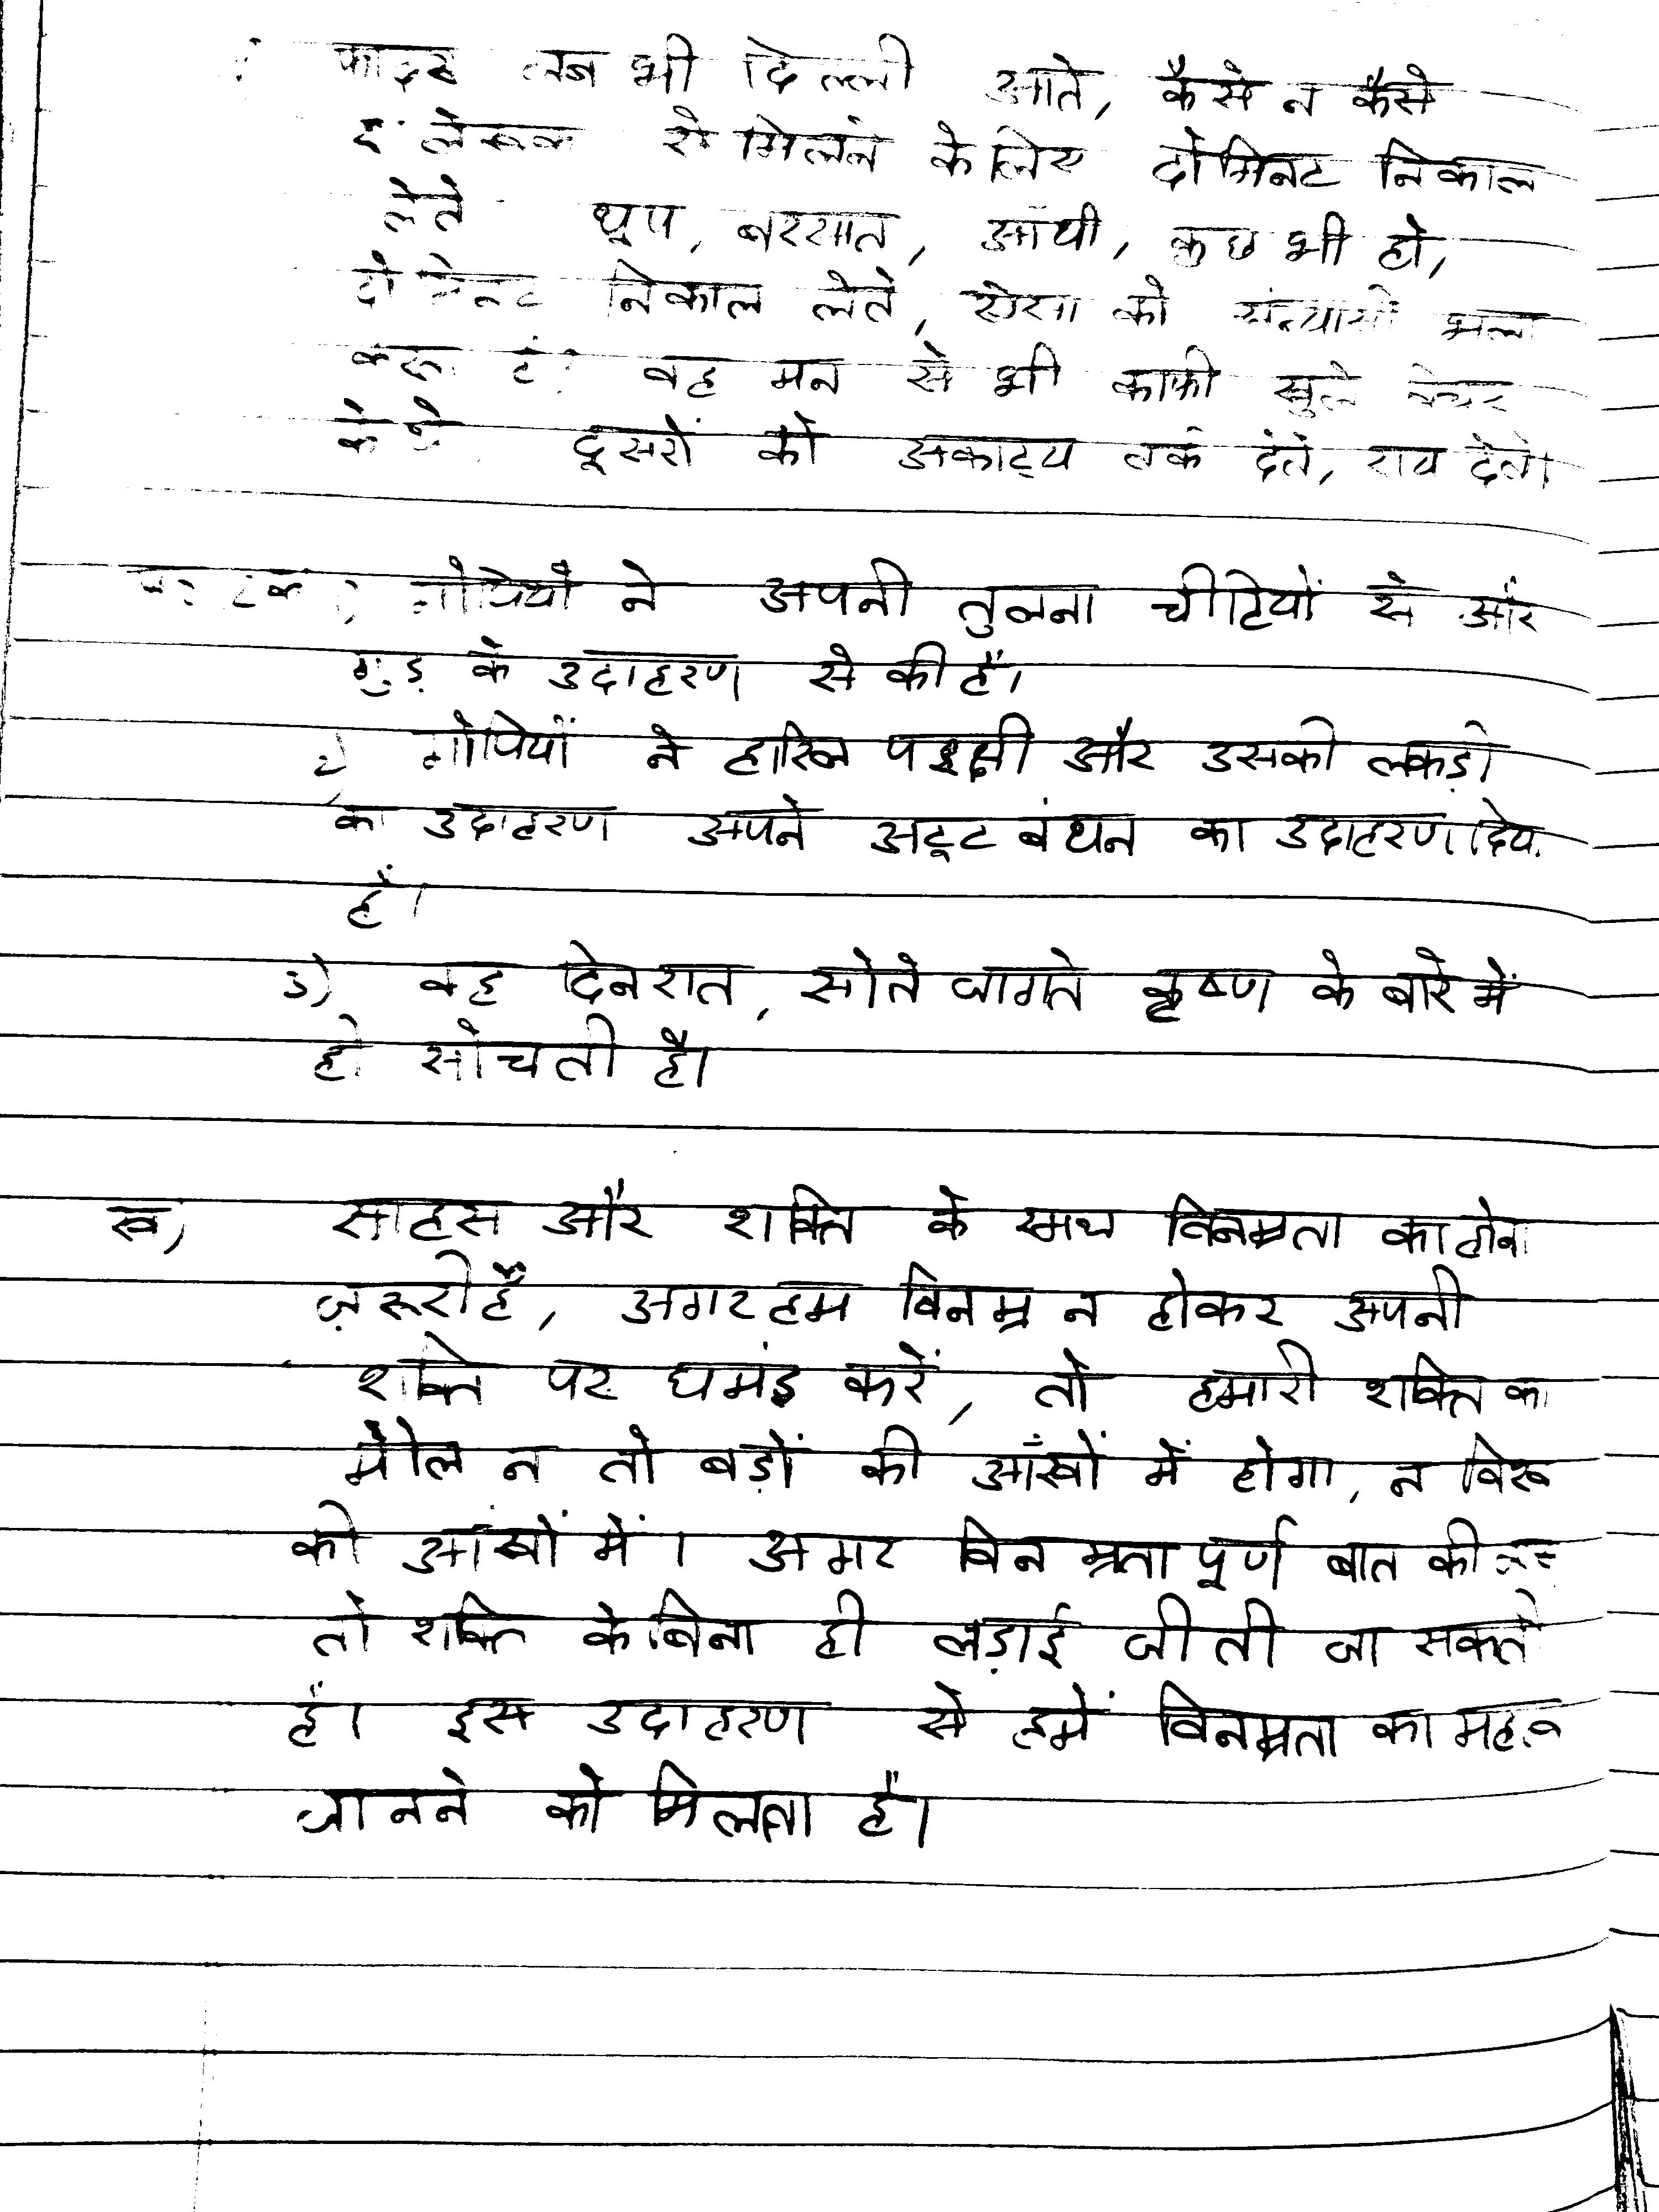 फादर जब भी दिल्ली आते, कैसे न कैसे
से मिलने के लिय दो मिनट निकाल
लेते धूप, बरसात, आँधी, कुछ भी हो,
दो मिनट निकाल लेते, ऐसा को संन्यासी भला
वह मन से भी काफी खुले
के थे दूसरों को अकाट्य तर्क देते, राय देते।
गोपियों ने अपनी तुलना चीटियों से और
गुड़ के उदाहरण से की है।
2) गोपियों ने हारिल पक्षी और उसकी लकड़ी
का उदाहरण अपने अटूट बंधन का उदाहरण दिया
है।
3) वह दिन रात, सोते जागते कृष्ण के बारे में
ही सोंचती है।
ख) साहस और शक्ति के साथ विनम्रता का होना
ज़रूरी है, अगर हम विनम्र न होकर अपनी
शक्ति पर घमंड करें, तो हमारी शक्ति का
मोल न तो बड़ों की आँखों में होगा, न
की आँखों में। अगर विनम्रता पूर्ण बात की
तो शक्ति के बिना ही लड़ाई जीती जा सकती
है। इस उदाहरण से हमें विनम्रता का महत्व
जानने को मिलता है।